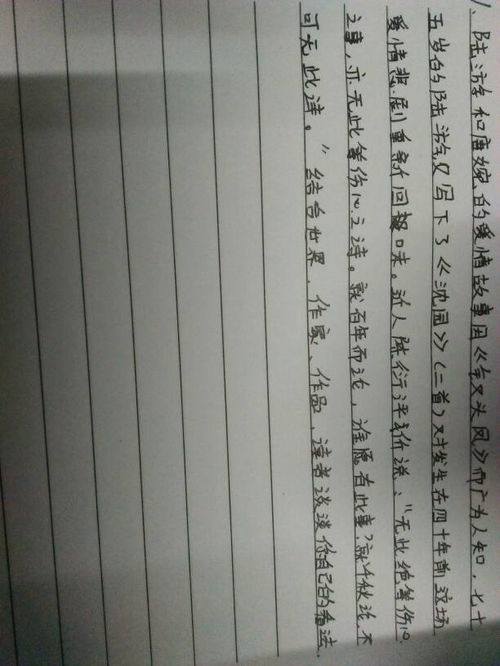 1、陆游和唐婉的爱情故事因《钗头凤》而广为人知,七十
五岁的陆游又写下了《沈园》(二首)对发生在四十年前这场
爱情悲剧重新回味。近人陈衍评价说:“无此绝等伤心
之事,亦无此等伤心之诗。就百年而论,谁愿有此事?就千秋论,不
可无此诗。”结合世界、作家、作品、读者谈谈你自己的看法。